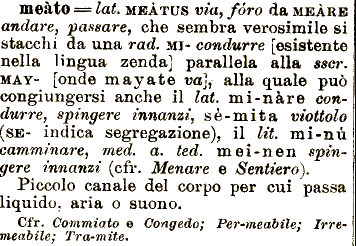 meàto = lat. MEÀTUS via, fóro da MEÀRE
andare, passare, che sembra verosimile si
stacchi da una rad. MI- condurre [esistente
nella lingua zenda] parallela alla sscr.
MAY- [onde mayate va], alla quale può
congiungersi anche il lat. mi-nàre con-
durre, spingere innanzi, sè-mita viottolo
(SE- indica segregazione), il lit. mi-nú
camminare, med. a. ted. mei-nen spin-
gere innanzi (cfr. Menare e Sentiero).
Piccolo canale del corpo per cui passa
liquido, aria o suono.
Cfr. Commiato e Congedo; Per-meabile; Irre-
meabile; Tra-mite.